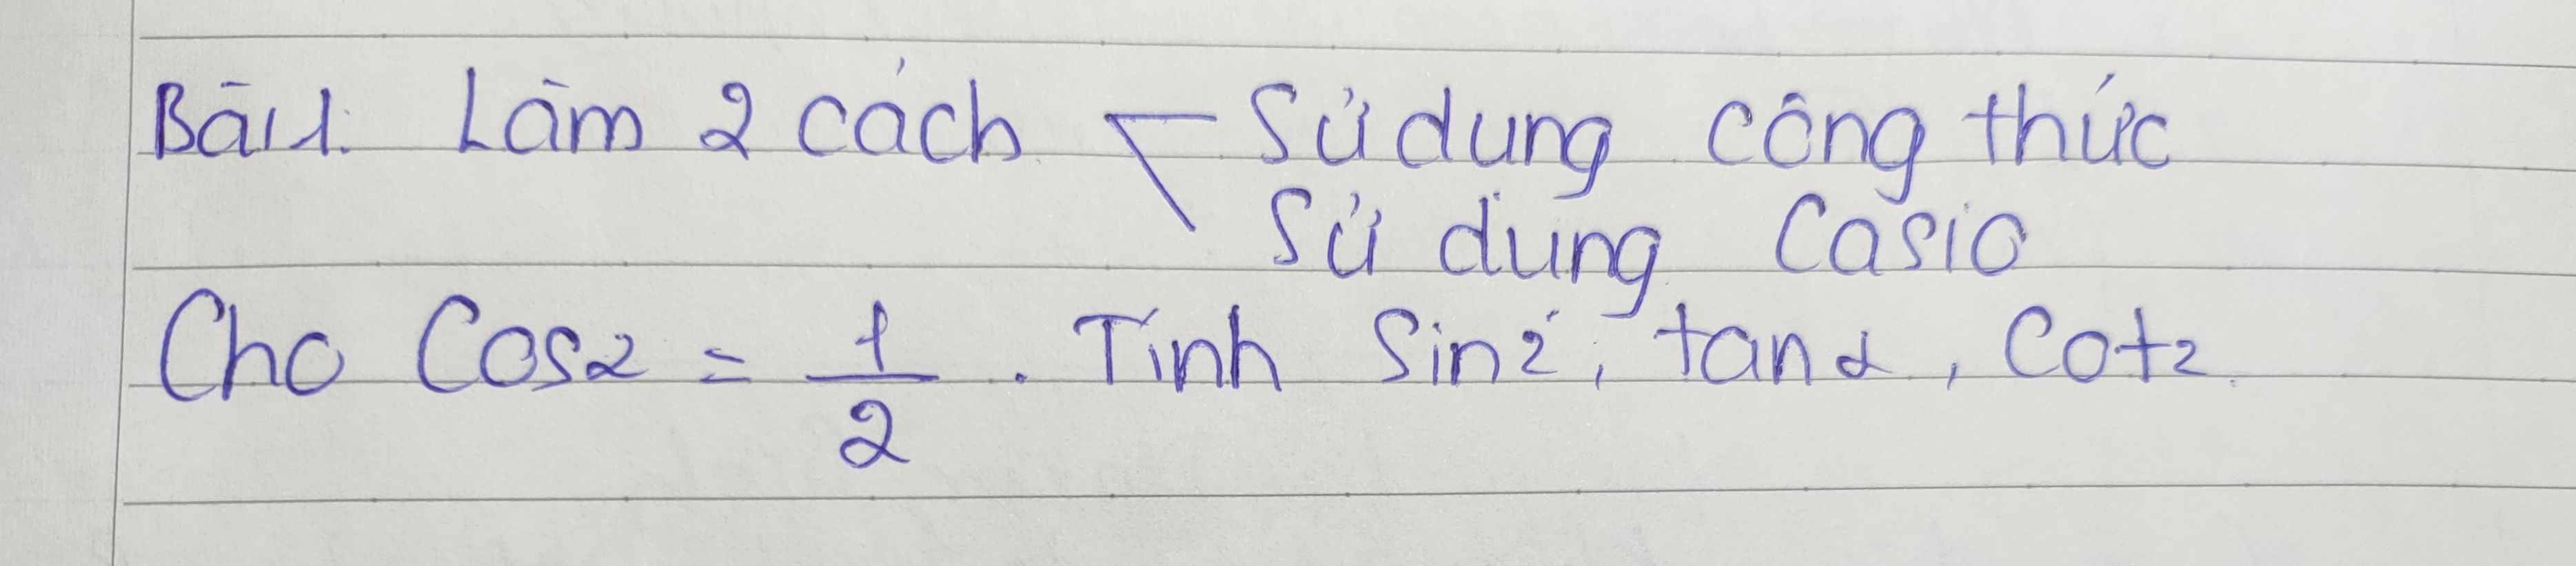 Bài 1. Làm 2 cách < Sử dụng công thức
Sử dụng Casio
Cho Cosα = 1/2. Tính Sinα, tanα, Cotα.